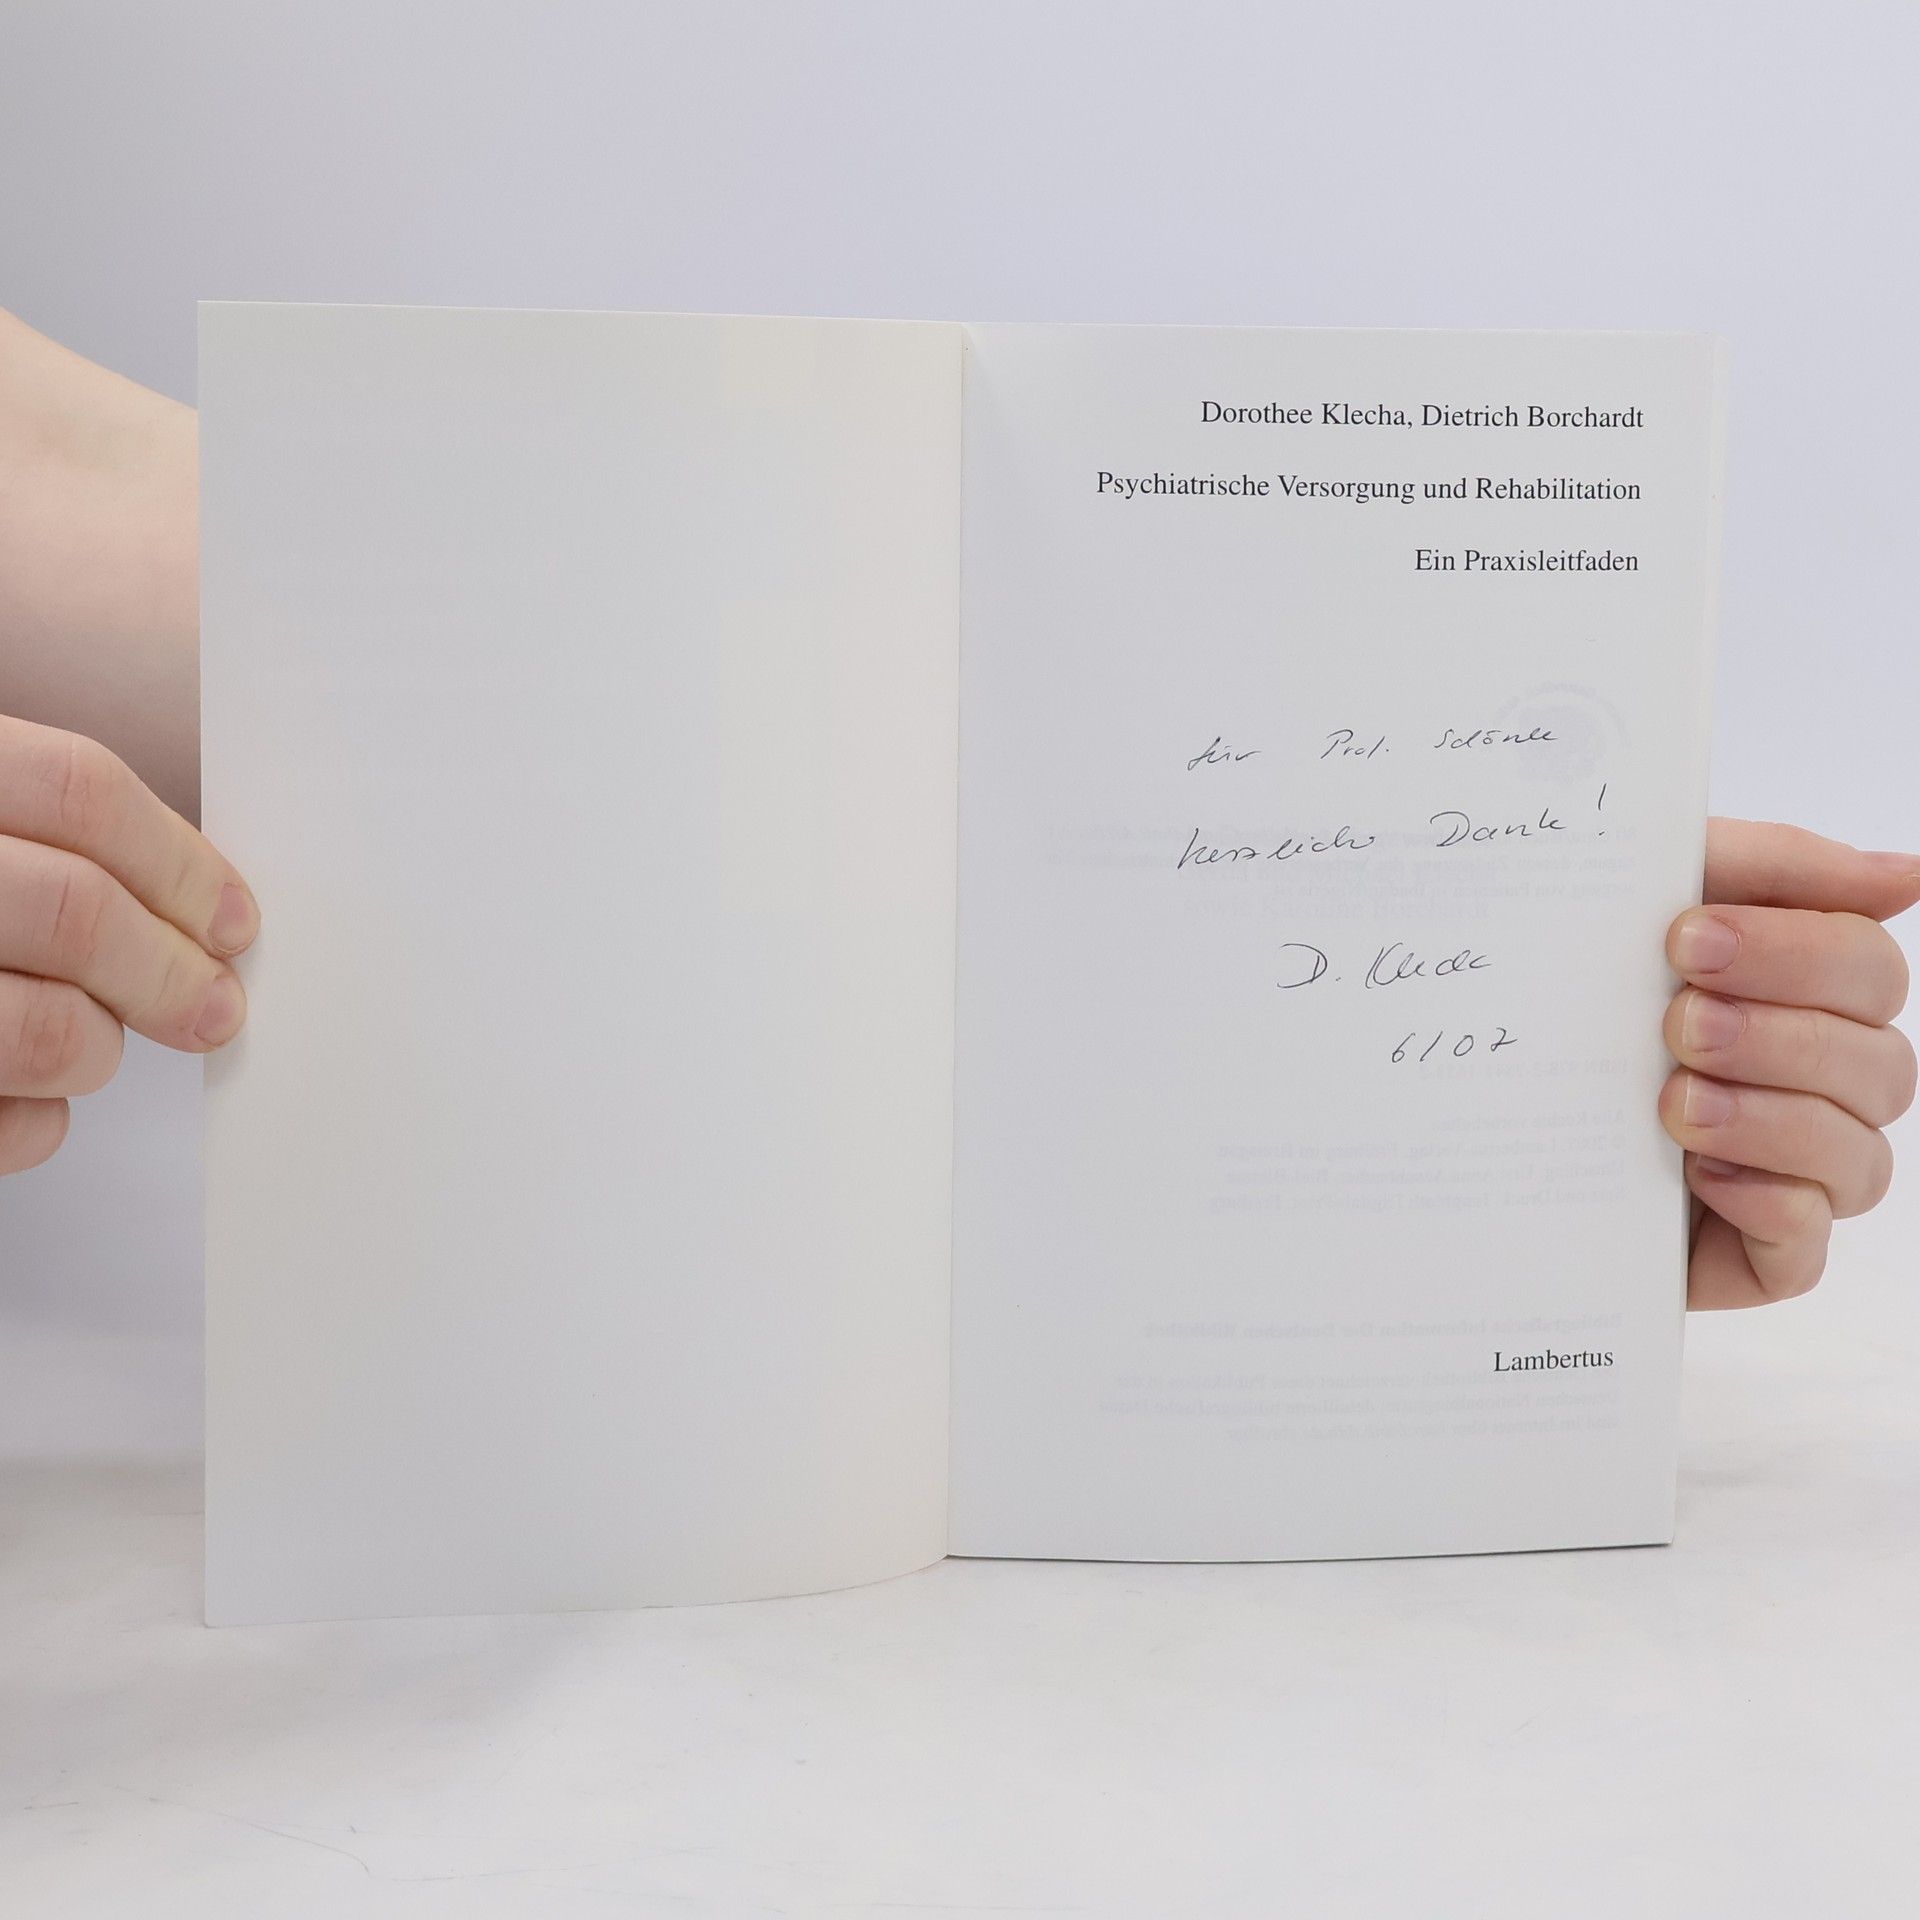 Dorothee Klecha, Dietrich Borchardt
Psychiatrische Versorgung und Rehabilitation
Ein Praxisleitfaden
für Prof. Schönle
herzlich Dank!
D. Klecha
6/07
Lambertus